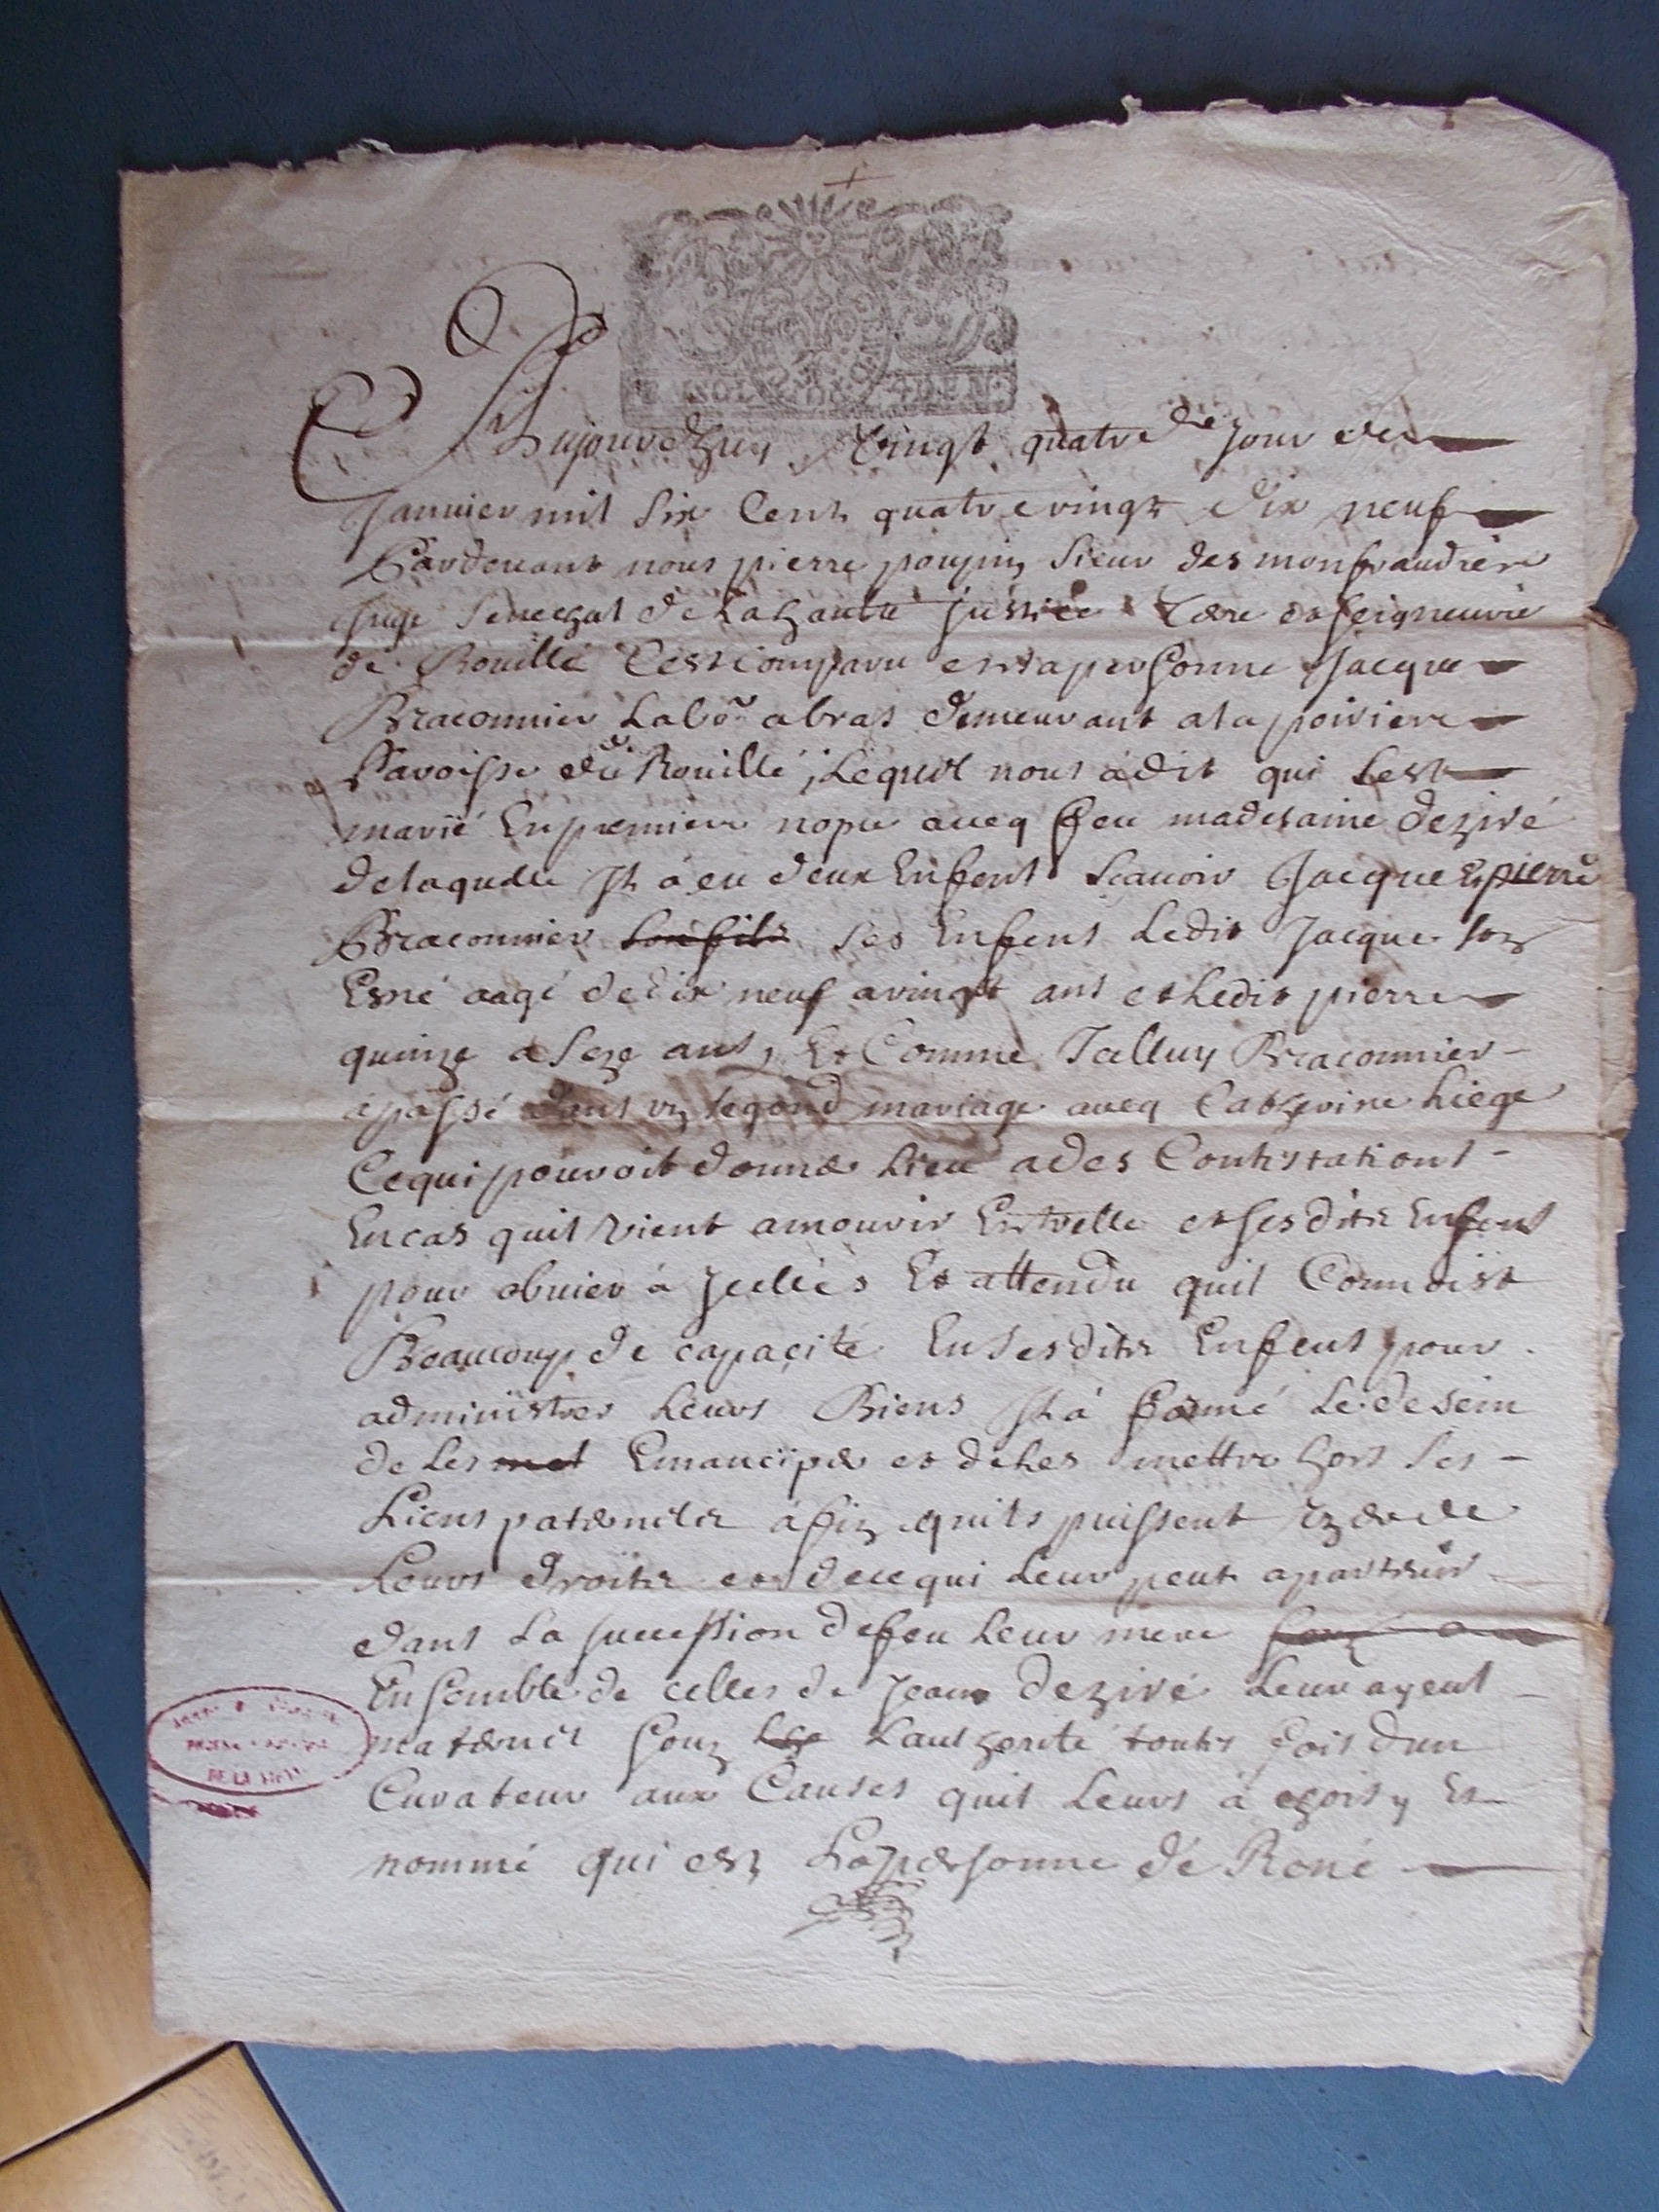 SOLS 4 DEN
Aujourdhuy vingt quatre de jour de
Janvier mil six Cent quatre vingt dix neuf
Pardevant nous pierre poupin, sieur des monfraudiere
Juge Senechal de La haulte justice terre et seigneurie
de Rouillé C'est comparu en sa personne Jacque
Braconnier Labor abras demeurant a la poiviere
Paroisse de Rouillé, Lequel nous à dit qui Cest
marié En premiere nopce avecq feu madelaine deziré
de laquelle Il à eu deux Enfent scavoir Jacque et pierre
Braconnier son fils ses Enfens Ledit Jacque son
Esné aagé de dix neuf a vingt ans et Ledit pierre
quinze a seze ans, Et Comme Icelluy Braconnier
à passé dans un segond mariage avecq Catherine Liege
Ce qui pouroit donner lieu a des Contistations
En cas quil vient a mourir Entrelle et ses dits Enfent
pour obvier à Icelles Et attendu quil Connoist
Beaucoup de capacité En ses dits Enfens pour
administrer Leurs Biens Il à formé Le desein
de Les met Emanciper et de Les mettre hors ses
Liens paternels àfin quils puissent
Leurs droits et de ce qui Leur peut apartenir
dans La succession de feu Leur mere
Ensemble de celles de Jean deziré Leur ayeul
maternel souz Lauthorité toutes fois dun
Curateur aux Causes quil Leurs à choisy Et
nommé qui est La personne de René
DE LA